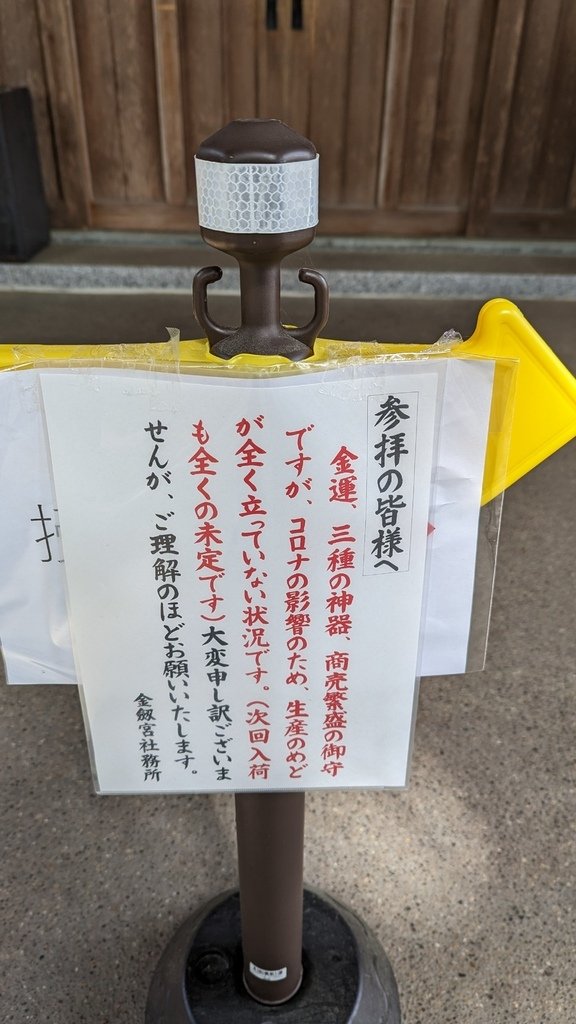 参拝の皆様へ
金運、三種の神器、商売繁盛の御守
ですが、コロナの影響のため、生産のめど
が全く立っていない状況です。(次回入荷
も全くの未定です)大変申し訳ございま
せんが、ご理解のほどお願いいたします。
金劔宮社務所